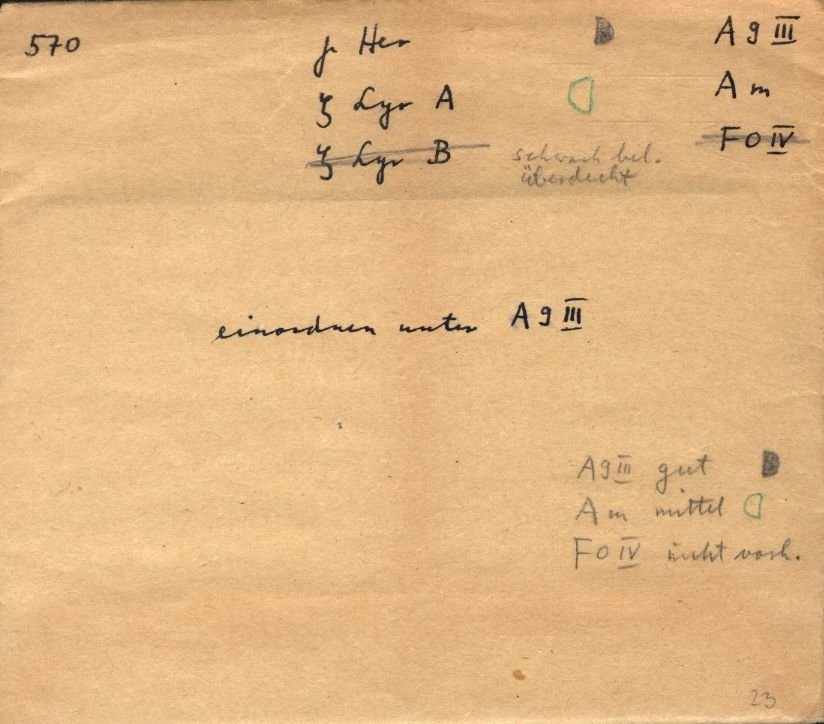 570 γ Her A 9 III
ζ Lyr A A m
ζ Lyr B F 0 IV
schwach bel.
überdeckt
einordnen unter A 9 III
A 9 III gut
A m mittel
F 0 IV nicht vorh.
23